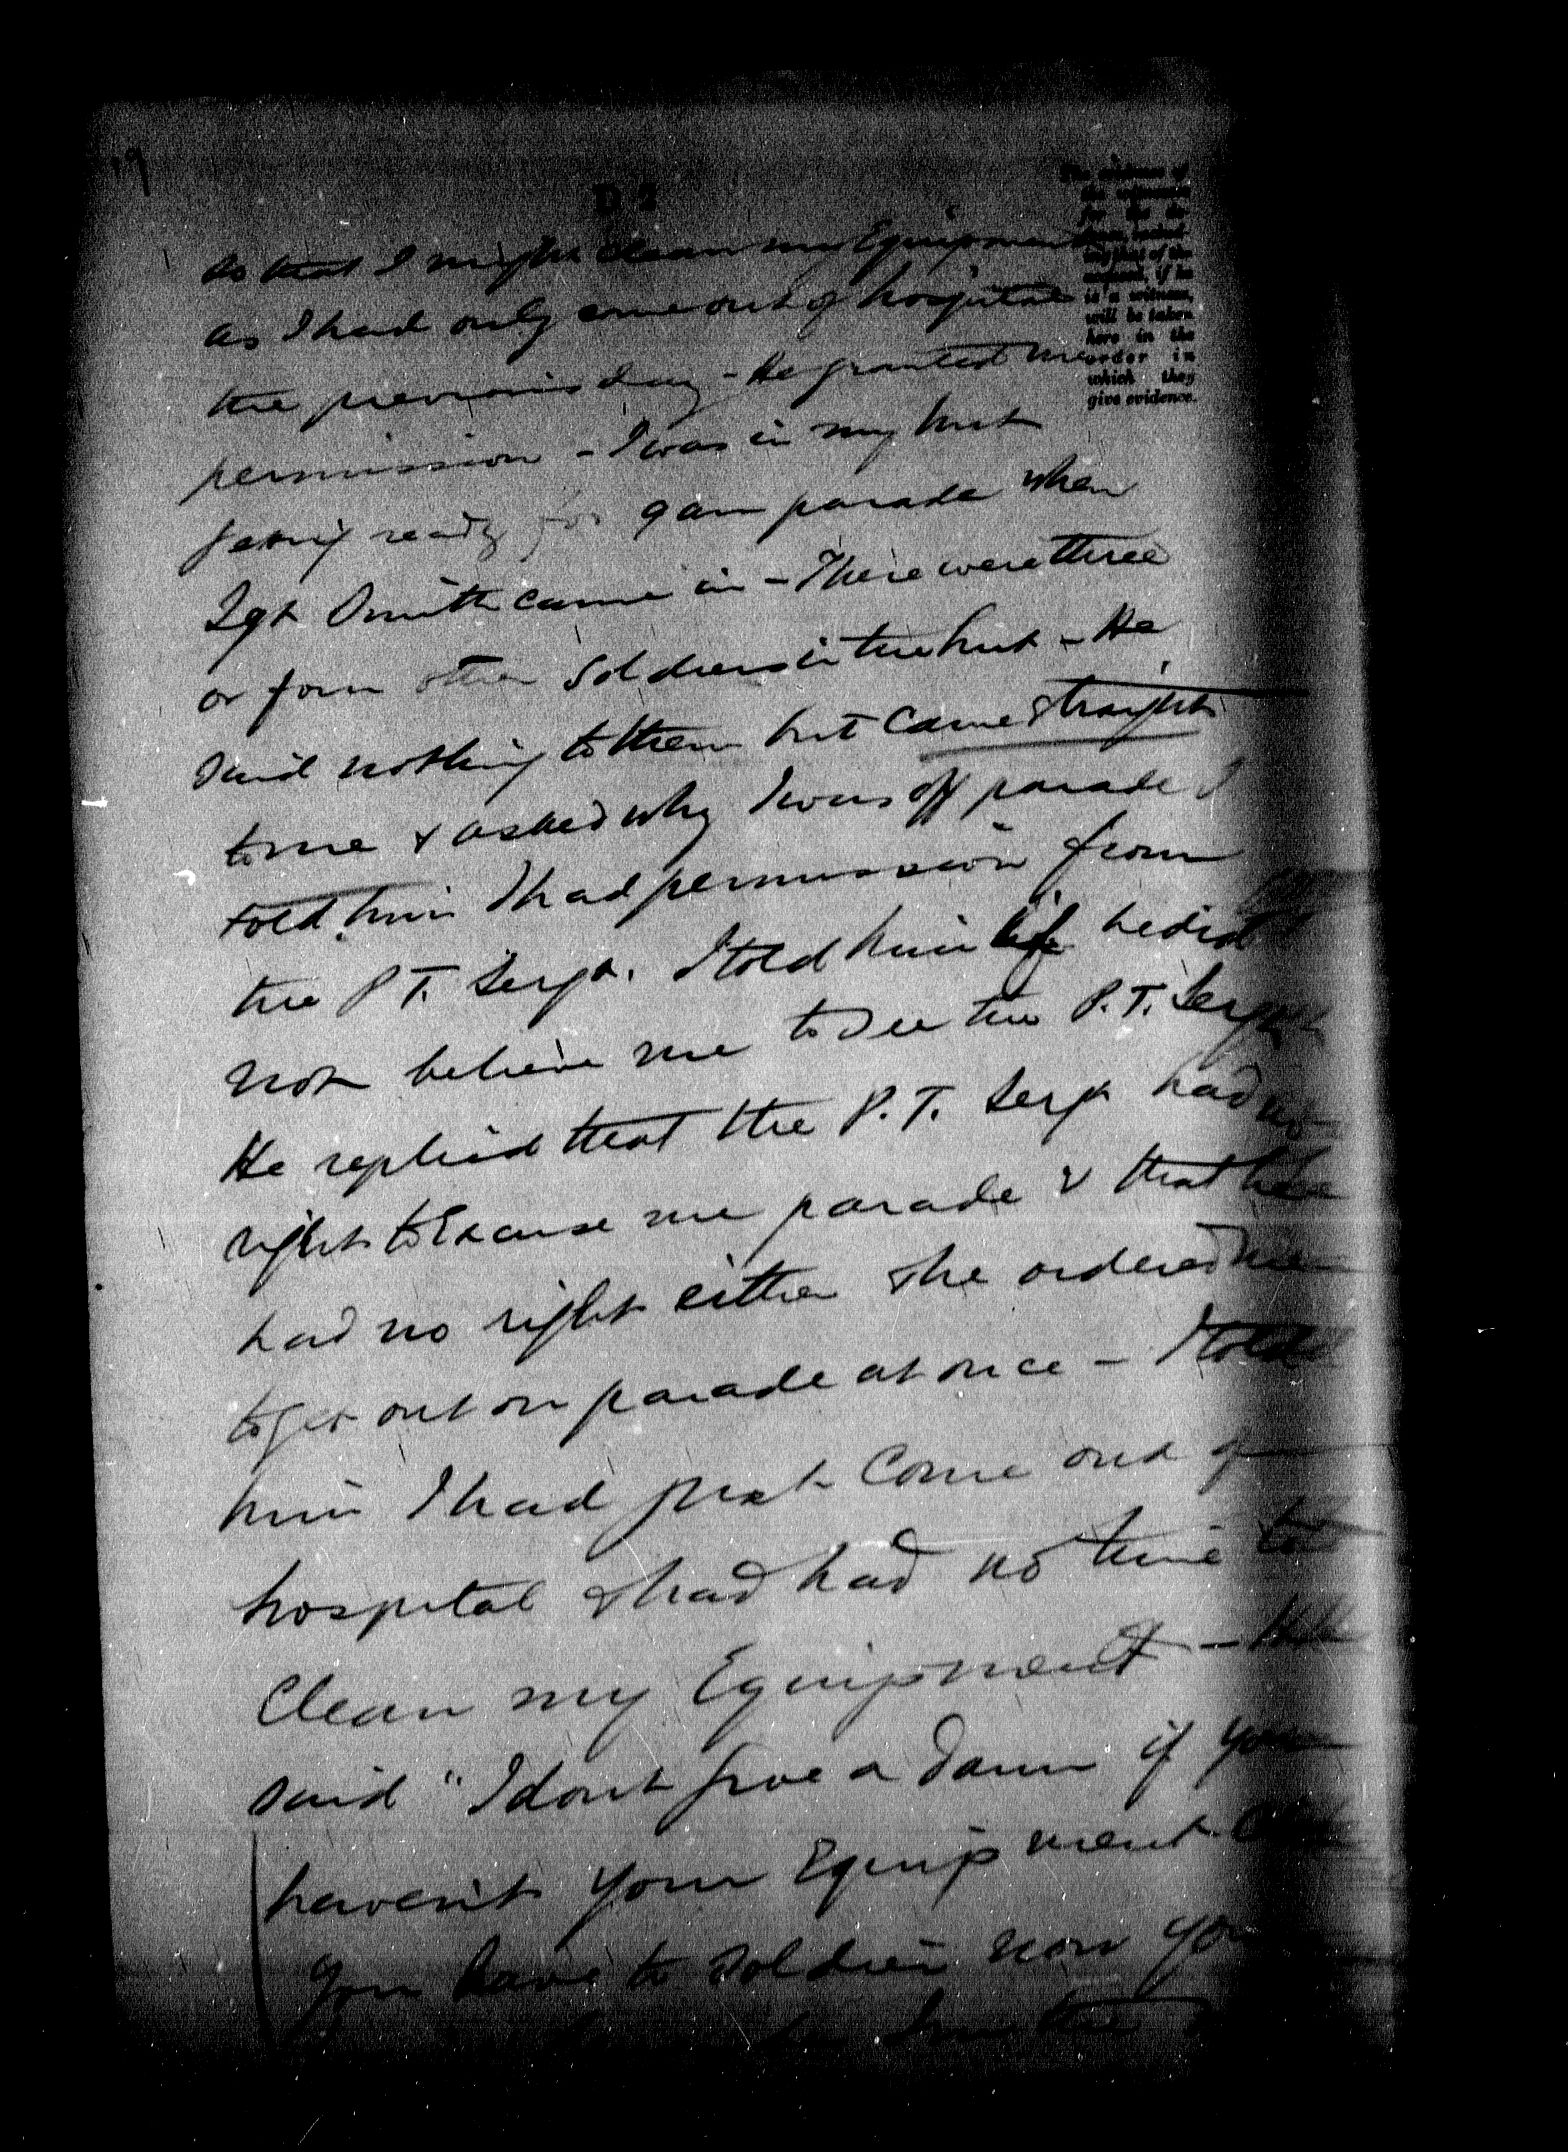 19
D 2
The evidence of
the witnesses
for the de-
fence, includ-
ing that of the
accused, if he
is a witness,
will be taken
here in the
order in
which they
give evidence.
so that I might clean my Equipment
as I had only come out of hospital
the previous day - He granted me
permission - I was in my hut
getting ready for 9 am parade when
Sgt Smith came in - There were three
or four other soldiers in the hut - He
said nothing to them but came straight
to me & asked why I was off parade I
told him I had permission from
the P.T. Sergt. I told him if he did
not believe me to see the P.T. Sergt
He replied that the P.T. Sergt had no
right to Excuse me parade & that he
had no right either & he ordered me
to get out on parade at once - I told
him I had just come out of
hospital & had had no time to
clean my Equipment - He
said "I dont give a damn if you
havent your Equipment
You have to soldier now you